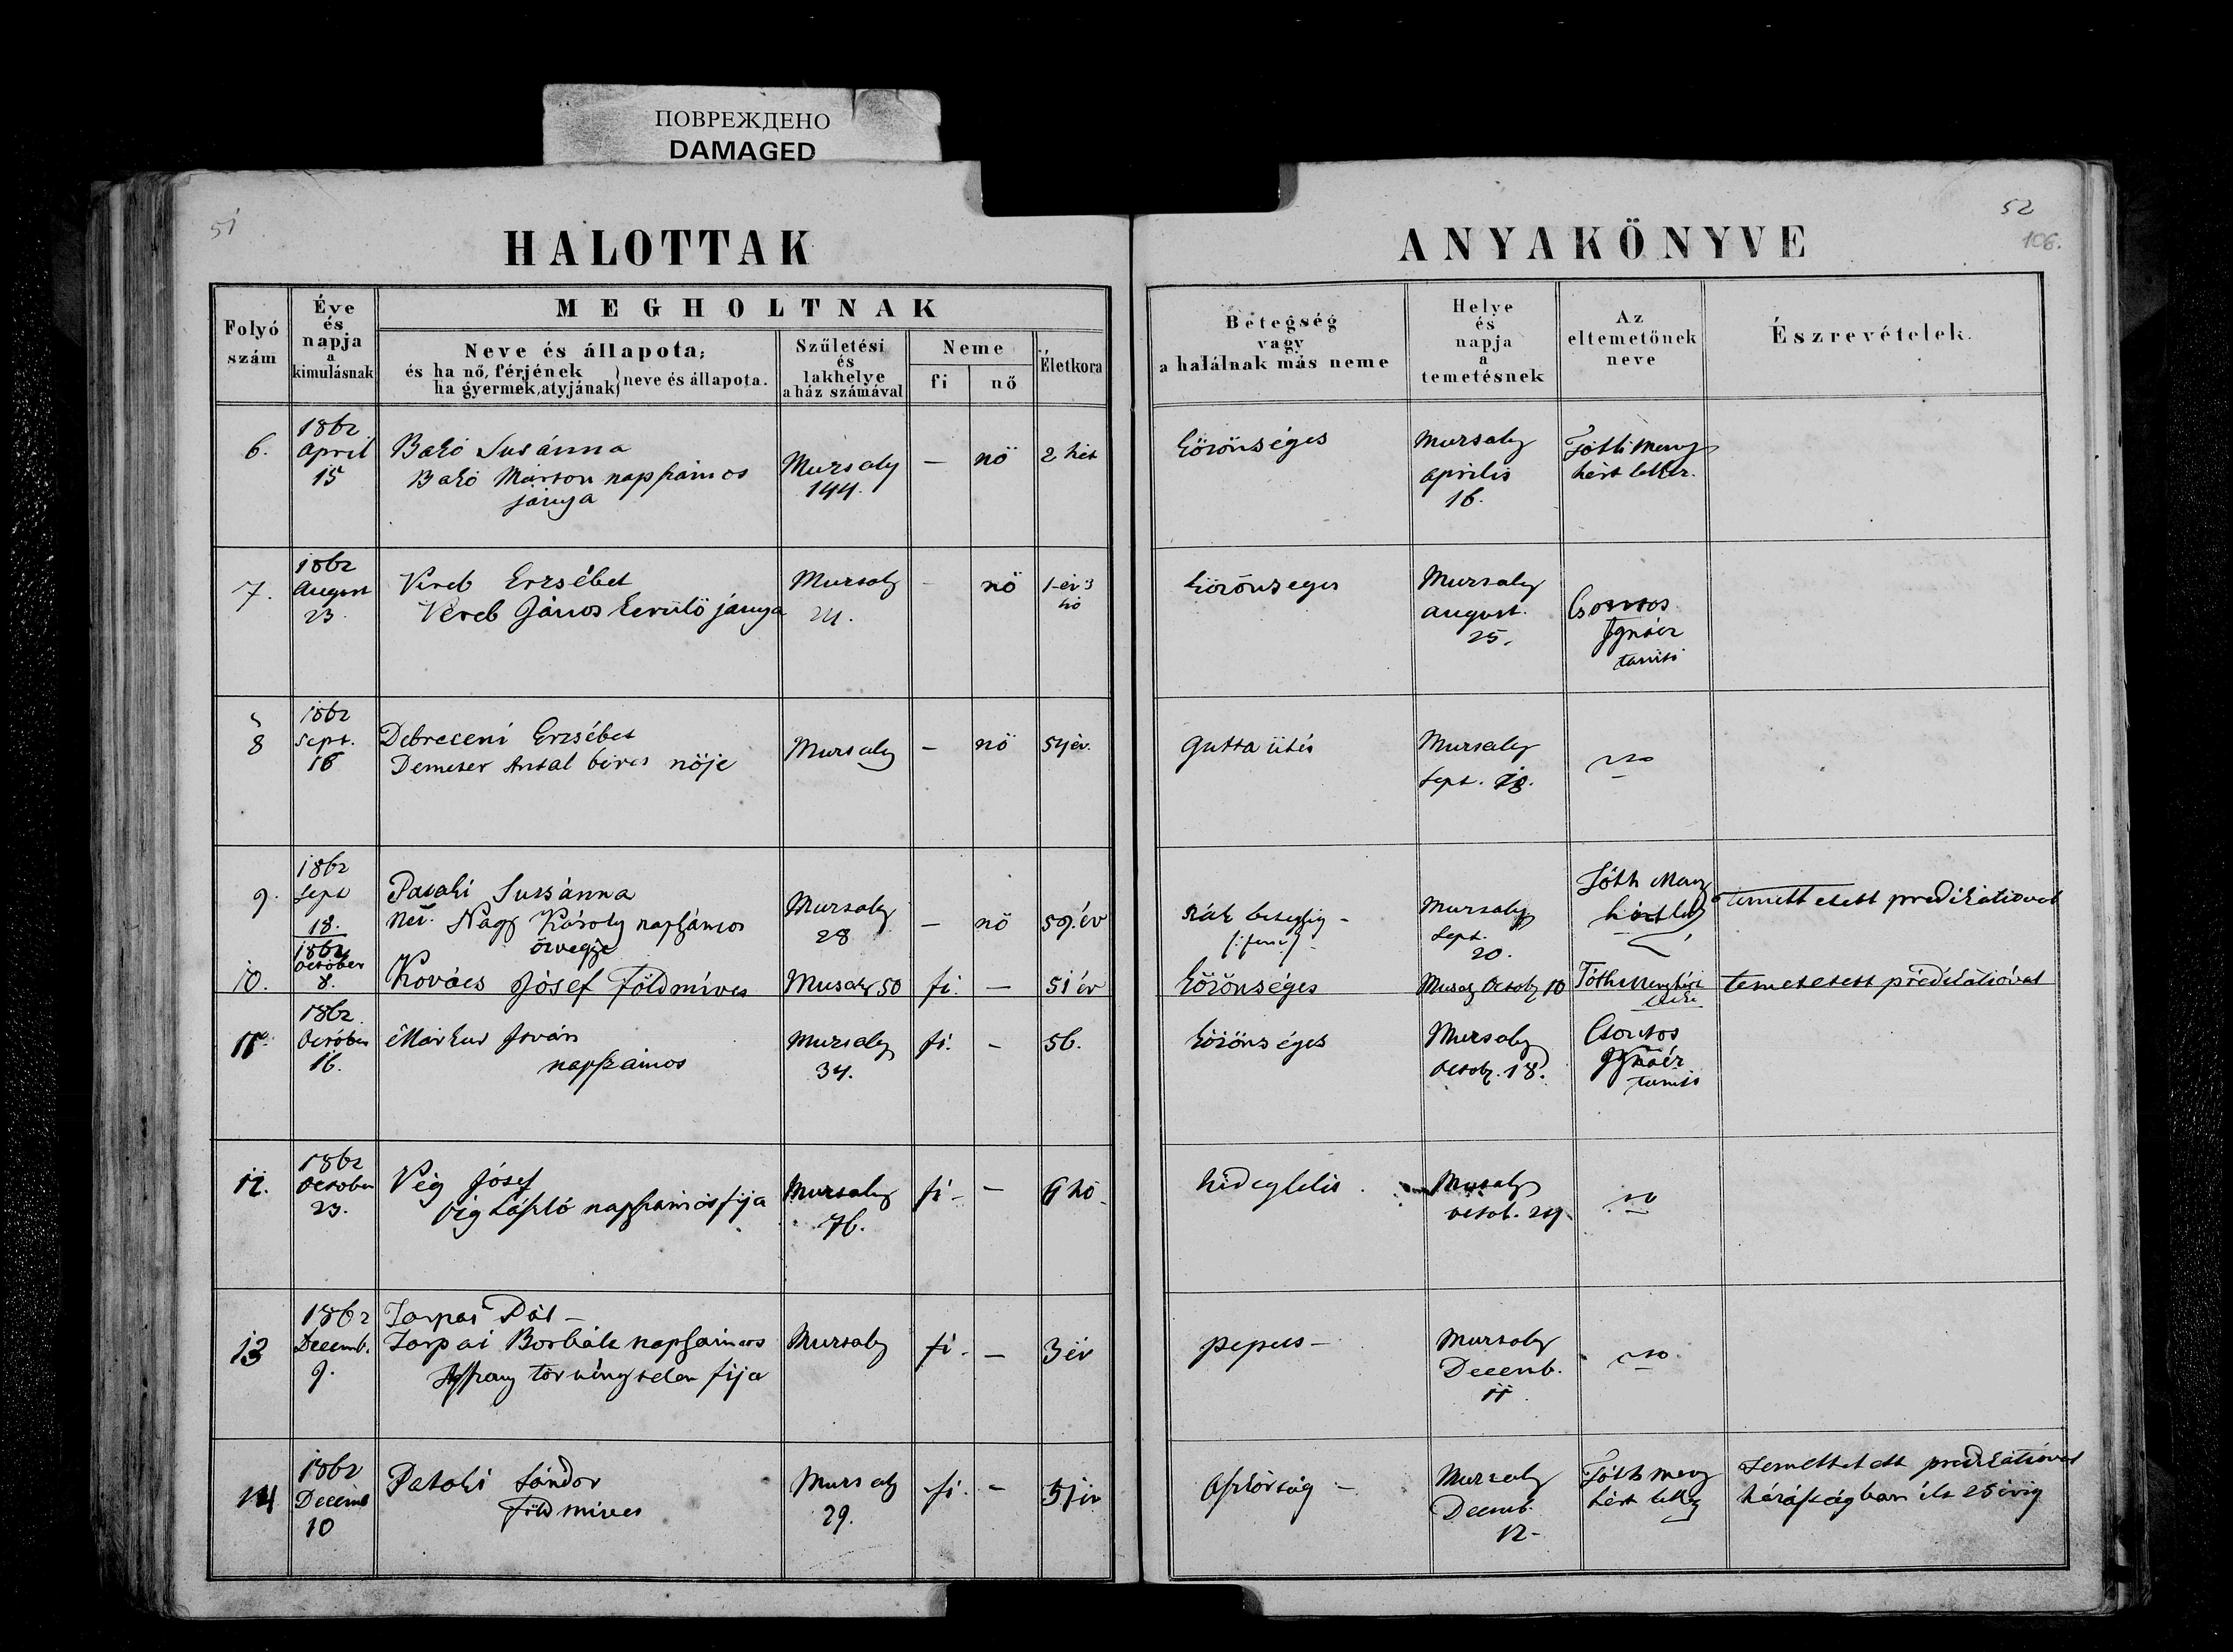 ПОВРЕЖДЕНО
DAMAGED
51
52
106.
HALOTTAK
ANYAKÖNYVE
Folyó szám
Éve és napja a kimulásnak
MEGHOLTNAK
Neve és állapota;
és ha nő, férjének
ha gyermek, atyjának} neve és állapota.
Születési és lakhelye a ház számával
Neme
fi
nő
Életkora
Betegség vagy a halálnak más neme
Helye és napja a temetésnek
Az eltemetőnek neve
Észrevételek.
6.
1862
April
15
Bakó Susánna
Bakó Márton napszámos
jánya
Mursaly
144.
—
nö
2 hét
közönséges
Mursaly
április
16.
Tóth Meny
hért lelkész.
7.
1862
August
23.
Veréb Erzsébet
Veréb János kerülö jánya
Mursaly
24.
-
nö
1 év 3
hó
közönséges
Mursaly
august.
25.
Csontos
Ignácz
tanító
8
1862
Sept.
16
Debreceni Erzsébet
Demeter Antal béres nöje
Mursaly
—
nö
54 év.
gutta ütés
Mursaly
Sept. 18.
9.
1862
Sept
18.
Pataki Susánna
Néh. Nagy Károly napszámos
özvegye
Mursaly
28
—
nö
59. év
rák betegség -
Mursaly
Sept.
20.
Tóth Meny
hért
temettetett predikátioval
10.
1862
October
8.
Kovács Jósef Földmíves
Musaly 50
fi.
—
51 év
közönséges
Musaly Octob 10
Tóth Menyhért
lelkész
temettetett prédikátióval
11.
1862
October
16.
Markus István
napszámos
Mursaly
34.
fi.
-
56.
közönséges
Mursaly
Octob. 18.
Csontos
Ignácz
tanitó
12.
1862
October
23.
Vég Jósef
Vég László napszámos fija
Mursaly
76.
fi -
—
6 hó
hideglelés.
Mursaly
octob. 24
13
1862
Decemb.
9.
Tarpai Pál -
Tarpai Borbála napszámos
Asszony törvénytelen fija
Mursaly
fi -
—
3 év
Mursaly
Decemb.
11
14
1862
Decemb
10
Pataki Sándor
Földmíves
Mursaly
29.
fi.
-
51 év
Aszkórság -
Mursaly
Decemb.
12-
Tóth Meny
hért lelkész
Temettetett predikátióval
házaságban élt 25 évig